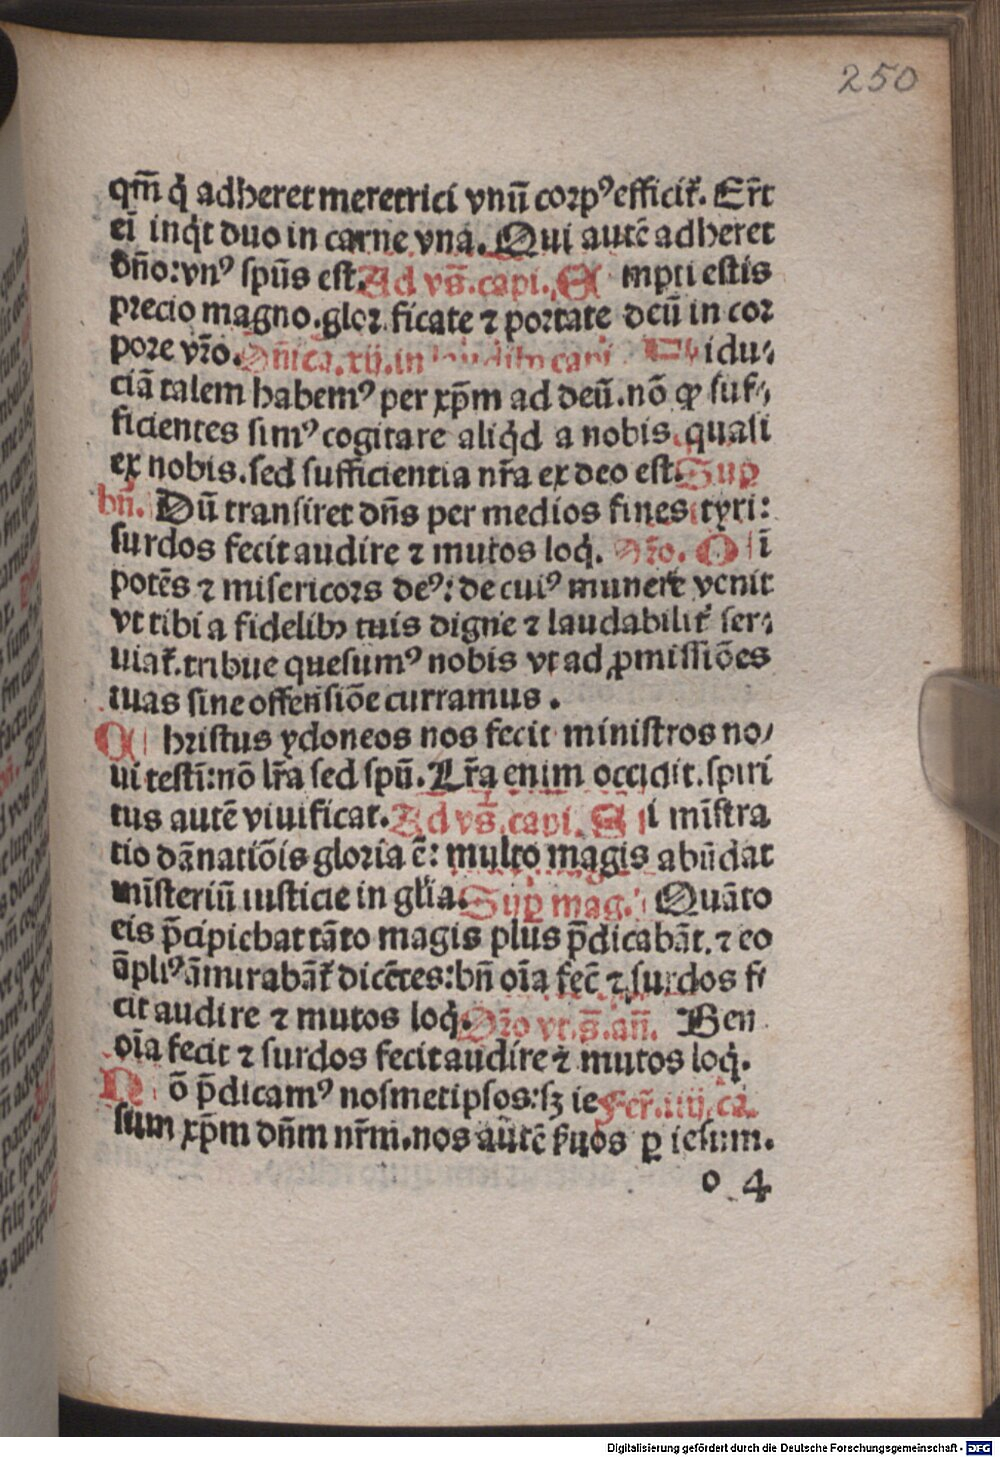 250
qm̄ q̇ adheret meretrici vnū corpꝰ efficit᷑. Er̄t
ei inq̇t duo in carne vna. Qui autē adheret
dn̄o: vnꝰ spūs est. Ad vs̄. capi. E mpti estis
precio magno. glorificate ⁊ portate deū in cor
pore vr̄o. Dn̄ica. xij. in laudibꝰ capi. F idu⸗
ciā talem habemꝰ per xp̄m ad deū. nō ꝙ suf⸗
ficientes simꝰ cogitare aliq̇d a nobis quasi
ex nobis. sed sufficientia nr̄a ex deo est. Suꝑ
bn̄. Dū transiret dn̄s per medios fines tyri:
surdos fecit audire ⁊ mutos loq̇. Or̄o. O ī
potēs ⁊ misericors deꝰ: de cuiꝰ munere venit
vt tibi a fidelibꝫ tuis digne ⁊ laudabilit᷑ ser⸗
uiat᷑. tribue quesumꝰ nobis vt ad ꝓmissiōes
tuas sine offensiōe curramus.
C hristus ydoneos nos fecit ministros no⸗
ui testī: nō lr̄a sed spū. Lr̄a enim occidit. spiri
tus autē viuificat. Ad vs̄. capi. S i mīstra
tio dānatiōis gloria ē: multo magis abūdat
mīsteriū iusticie in glīa. Suꝑ mag. Quāto
eis p̄cipiebat tāto magis plus p̄dicabāt. ⁊ eo
āpliꝰ āmirabāt᷑ dicētes: bn̄ oīa fec̄ ⁊ surdos fe
cit audire ⁊ mutos loq̇. Or̄o vt. s̄. an̄. Ben
oīa fecit ⁊ surdos fecit audire ⁊ mutos loq̇.
N ō p̄dicamꝰ nosmetipsos: sꝫ ie Fer̄. iiij. ca.
sum xp̄m dn̄m nr̄m. nos autē ẜuos ꝑ iesum.
o 4
Digitalisierung gefördert durch die Deutsche Forschungsgemeinschaft - DFG